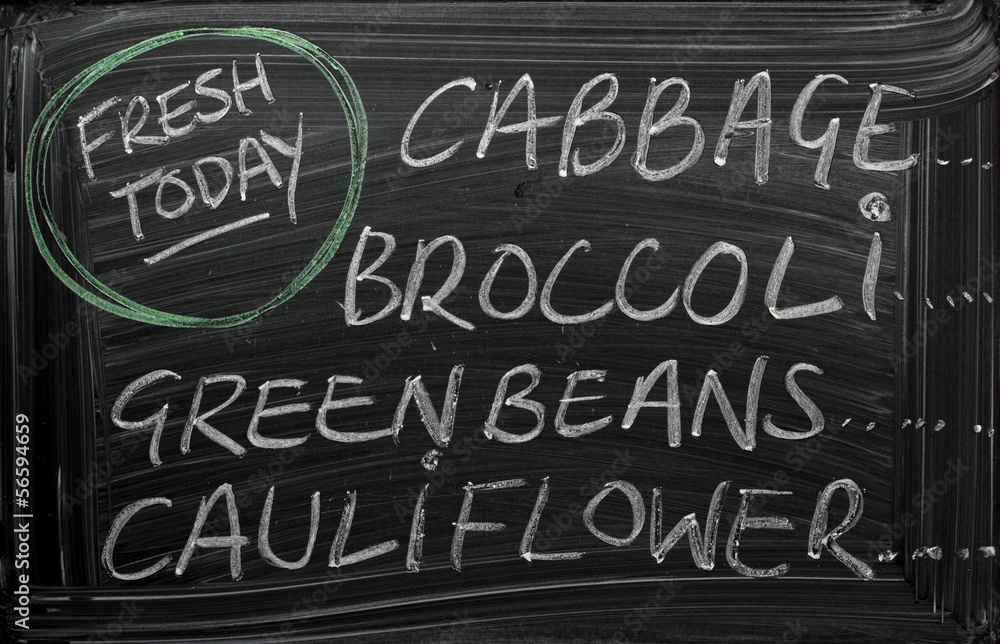 FRESH
TODAY
CABBAGE...
BROCCOLi....
GREEN BEANS......
CAULiFLOWER.....
Adobe Stock | #56594659